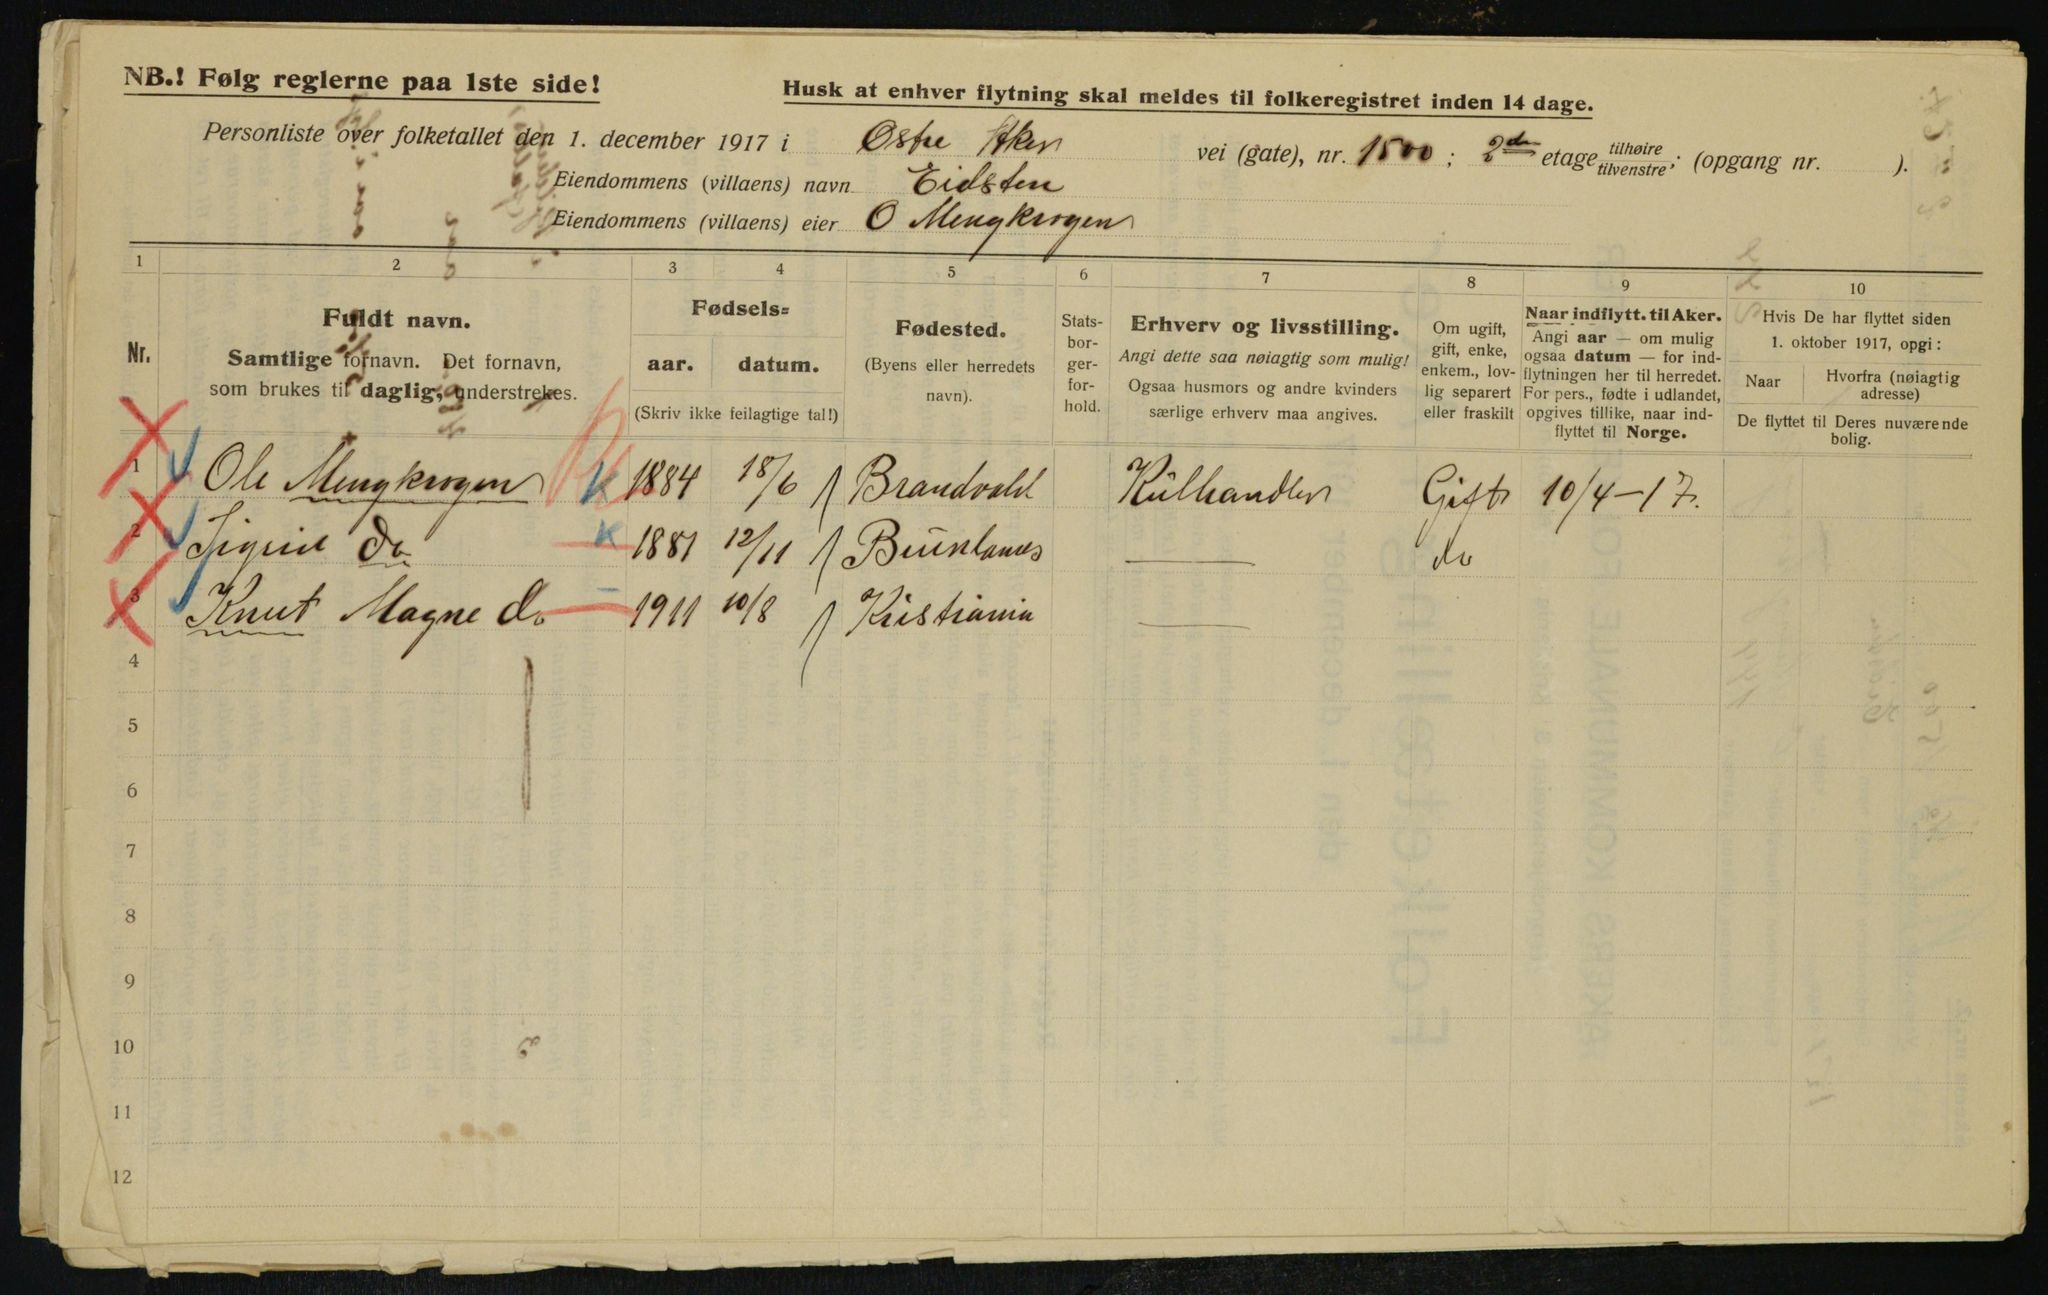 NB.! Følg reglerne paa 1ste side!
Husk at enhver flytning skal meldes til folkeregistret inden 14 dage.
Personliste over folketallet den 1. december 1917 i Østre Aker vei (gate), nr. 1500; 2den etage tilhøire tilvenstre; (opgang nr. ).
Eiendommens (villaens) navn Eidsten
Eiendommens (villaens) eier O Mengkrogen
1 2 3 4 5 6 7 8 9 10
Nr.
Fuldt navn.
Samtlige fornavn. Det fornavn,
som brukes til daglig, understrekes.
Fødsels=
aar. datum.
(Skriv ikke feilagtige tal!)
Fødested.
(Byens eller herredets
navn).
Stats-
bor-
ger-
for-
hold.
Erhverv og livsstilling.
Angi dette saa nøiagtig som mulig!
Ogsaa husmors og andre kvinders
særlige erhverv maa angives.
Om ugift,
gift, enke,
enkem., lov-
lig separert
eller fraskilt
Naar indflytt. til Aker.
Angi aar — om mulig
ogsaa datum — for ind-
flytningen her til herredet.
For pers., fødte i udlandet,
opgives tillike, naar ind-
flyttet til Norge.
Hvis De har flyttet siden
1. oktober 1917, opgi:
Naar Hvorfra (nøiagtig
adresse)
De flyttet til Deres nuværende
bolig.
1 Ole Mengkrogen K 1884 18/6 Brandvold Kulhandler Gift 10/4-17.
2 Sigrid do K 1881 12/11 do
3 Knut Magne do 1911 10/8 Kristiania
4
5
6
7
8
9
10
11
12